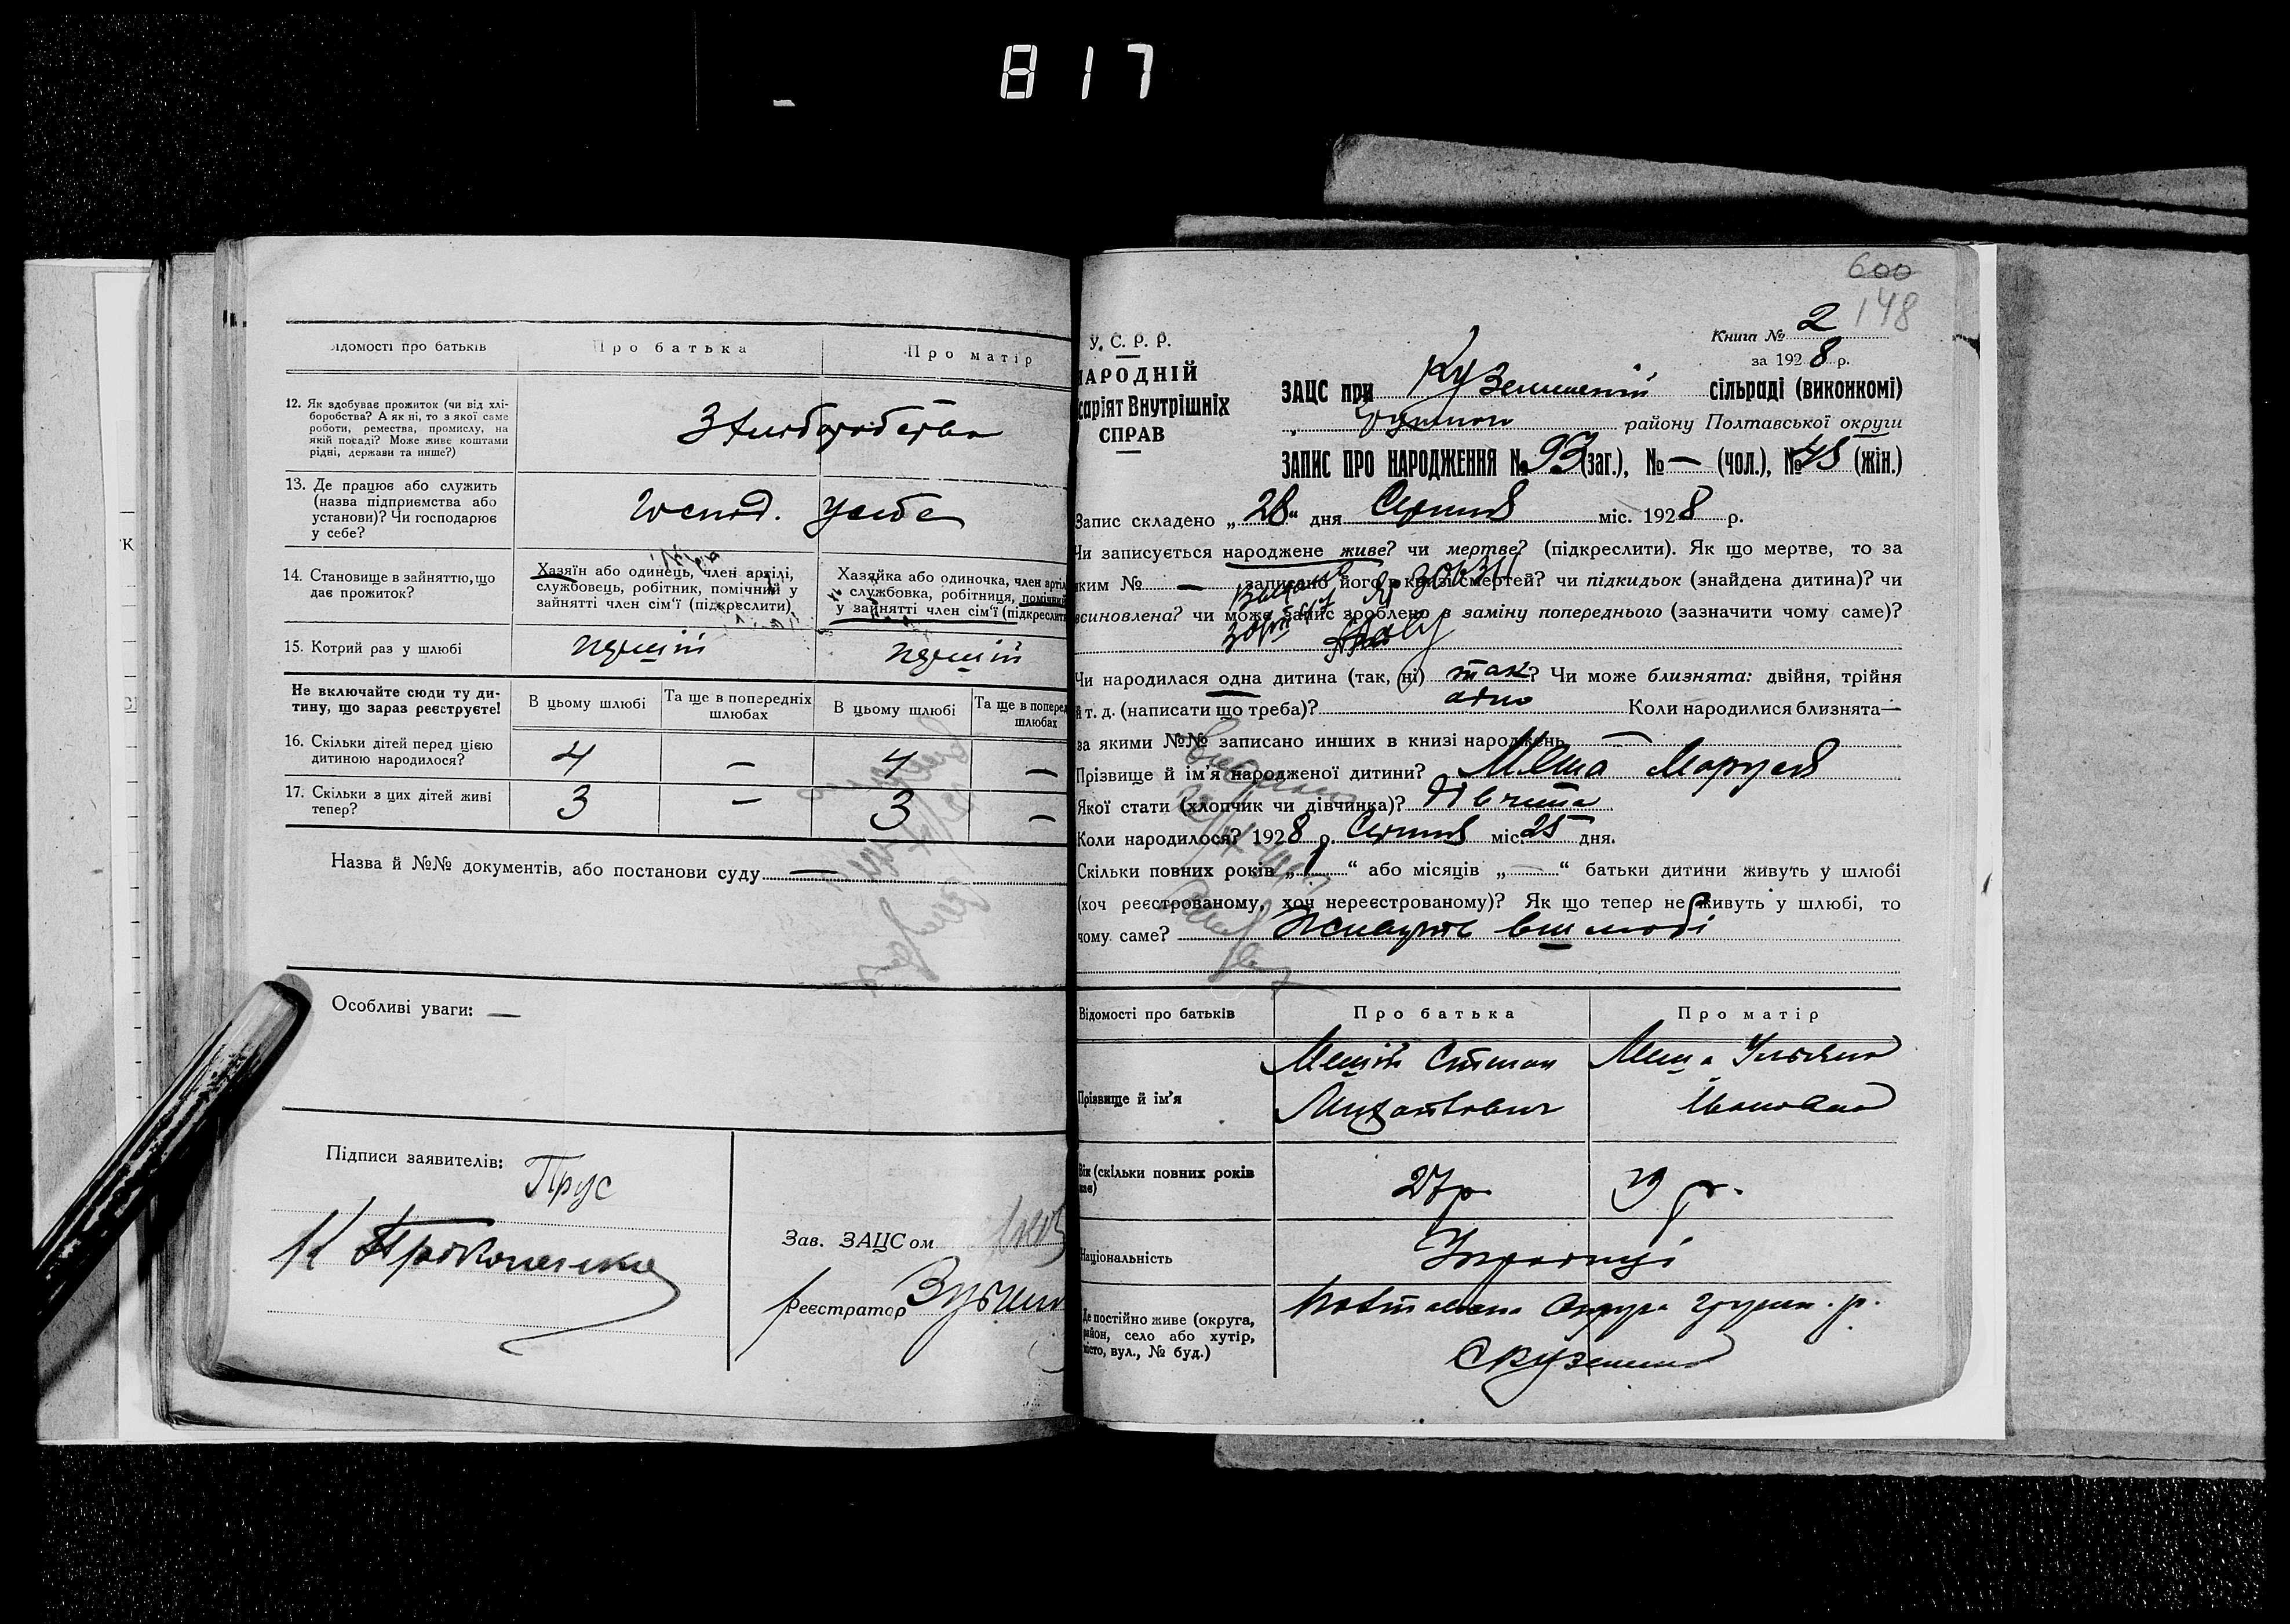 817
Відомості про батьків
Про батька
Про матір
12. Як здобуває прожиток (чи від хлі-
боробства? А як ні, то з якої саме
роботи, ремества, промислу, на
якій посаді? Може живе коштами
рідні, держави та инше?)
З хліборобства
13. Де працює або служить
(назва підприємства або
установи)? Чи господарює
у себе?
Господ. у себе
14. Становище в зайняттю, що
дає прожиток?
Хазяїн або одинець, член артілі,
службовець, робітник, помічний у
зайнятті член сім'ї (підкреслити)
Хазяйка або одиночка, член артіл
службовка, робітниця, помічний
у зайнятті член сім'ї (підкреслит
15. Котрий раз у шлюбі
перший
перший
Не включайте сюди ту ди-
тину, що зараз реєструєте!
В цьому шлюбі
Та ще в попередніх
шлюбах
В цьому шлюбі
Та ще в попере
шлюбах
16. Скільки дітей перед цією
дитиною народилося?
4 — 4 —
17. Скільки з цих дітей живі
тепер?
3 — 3 —
Назва й №№ документів, або постанови суду —
Особливі уваги: —
Підписи заявителів: Прус
К Прокопенко
Зав. ЗАЦСом
Реєстратор
600
148
Книга № 2
за 1928 р.
У. С. Р. Р.
НАРОДНІЙ
саріят Внутрішніх
СПРАВ
ЗАЦС при сільраді (виконкомі)
району Полтавської округи
ЗАПИС ПРО НАРОДЖЕННЯ № 93 (заг.), № — (чол.), № 45 (жін.)
Запис складено „28“ дня Серпня міс. 1928 р.
Чи записується народжене живе? чи мертве? (підкреслити). Як що мертве, то за
яким № — записано його в книзі смертей? чи підкидьок (знайдена дитина)? чи
всиновлена? чи може запис зроблено в заміну попереднього (зазначити чому саме)?
Чи народилася одна дитина (так, ні) так? Чи може близнята: двійня, трійня
й т. д. (написати що треба)? одно Коли народилися близнята—
за якими №№ записано инших в книзі народжень —
Прізвище й ім'я народженої дитини? Маруся
Якої стати (хлопчик чи дівчинка)? дівчина
Коли народилося? 1928 р. Серпня міс. 25 дня.
Скільки повних років „ “ або місяців „—“ батьки дитини живуть у шлюбі
(хоч реєстрованому, хоч нереєстрованому)? Як що тепер не живуть у шлюбі, то
чому саме? Живуть в шлюбі
Відомості про батьків
Про батька
Про матір
Прізвище й ім'я
Степан
Михайлович
Уляна
Івановна
Вік (скільки повних років
має)
27 р.
29 р.
Національність
Українці
Де постійно живе (округа,
район, село або хутір,
місто, вул., № буд.)
Полтавська Округа Грушк. р.